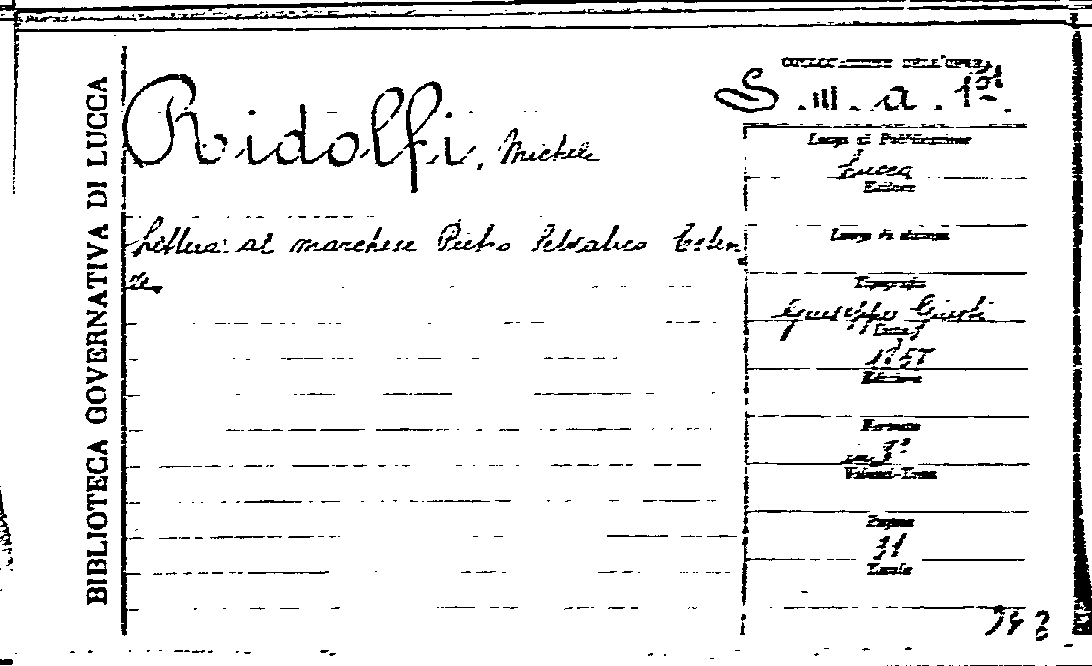 BIBLIOTECA GOVERNATIVA DI LUCCA
Ridolfi, Michele
Lettera al marchese Pietro Selvatico Esten
se
COLLOCAZIONE DELL'OPERA
S. III. a. 12
Luogo di Pubblicazione
Lucca
Editore
Luogo di stampa
Tipografia
Giuseppe Giusti
Anno
Edizione
Formato
in 8°
Volumi-Tomi
Pagine
31
Tavole